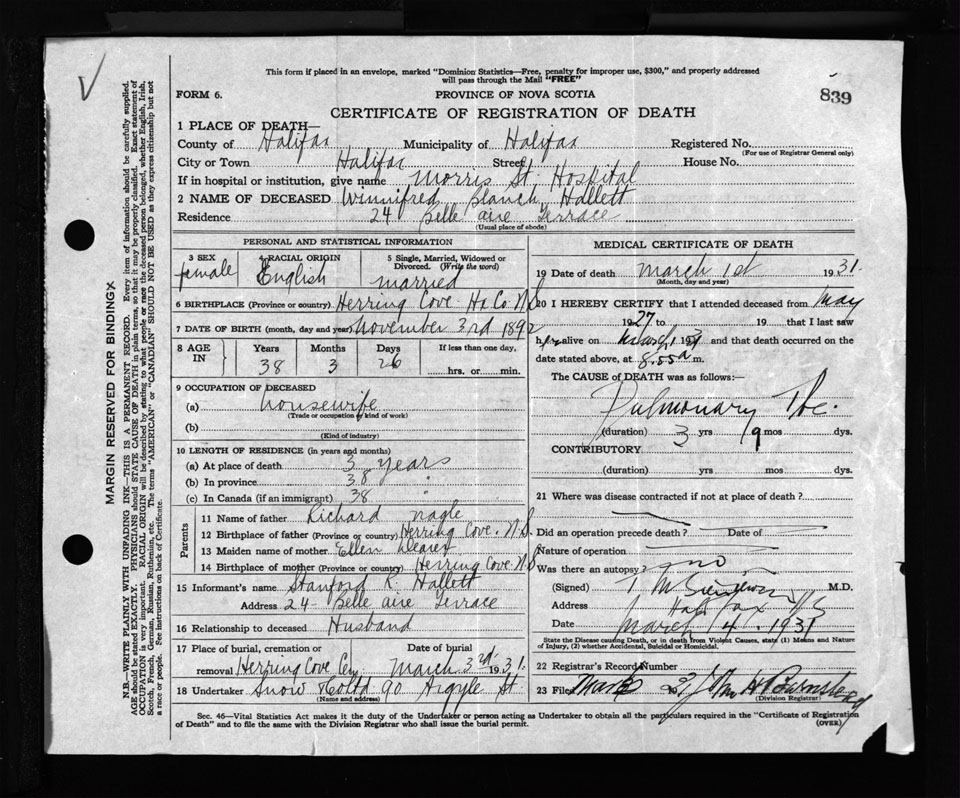 This form if placed in an envelope, marked "Dominion Statistics—Free, penalty for improper use, $300," and properly addressed
will pass through the Mail "FREE"
FORM 6.
PROVINCE OF NOVA SCOTIA
839
CERTIFICATE OF REGISTRATION OF DEATH
1 PLACE OF DEATH—
County of Halifax Municipality of Halifax Registered No.
(For use of Registrar General only)
City or Town Halifax Street House No.
If in hospital or institution, give name Morris St. Hospital
2 NAME OF DECEASED Winnifred Blanch Hallett
Residence 24 Belle aire Terrace
(Usual place of abode)
PERSONAL AND STATISTICAL INFORMATION
3 SEX 4 RACIAL ORIGIN 5 Single, Married, Widowed or
Divorced. (Write the word)
female English married
6 BIRTHPLACE (Province or country) Herring Cove Hx Co N.S.
7 DATE OF BIRTH (month, day and year) November 3rd 1892
8 AGE IN Years Months Days If less than one day,
38 3 26 hrs. or min.
9 OCCUPATION OF DECEASED
(a) housewife
(Trade or occupation or kind of work)
(b)
(Kind of industry)
10 LENGTH OF RESIDENCE (in years and months)
(a) At place of death 3 years
(b) In province 38 "
(c) In Canada (if an immigrant) 38 "
Parents
11 Name of father Richard Nagle
12 Birthplace of father (Province or country) Herring Cove. N.S.
13 Maiden name of mother Ellen
14 Birthplace of mother (Province or country) Herring Cove N.S
15 Informant's name Stanford R. Hallett
Address 24 Belle aire Terrace
16 Relationship to deceased Husband
17 Place of burial, cremation or Date of burial
removal Herring Cove Cem. March 3rd 1931.
18 Undertaker Snow & Co Ltd 90 Argyle St.
(Name and address)
MEDICAL CERTIFICATE OF DEATH
19 Date of death March 1st 1931.
(Month, day and year)
20 I HEREBY CERTIFY that I attended deceased from May
1927 to 19 that I last saw
her alive on March 1 1931 and that death occurred on the
date stated above, at 8.55 a m.
The CAUSE OF DEATH was as follows:—
Pulmonary Tbc.
(duration) 3 yrs 9 mos dys.
CONTRIBUTORY
(duration) yrs mos dys.
21 Where was disease contracted if not at place of death?
Did an operation precede death? Date of
Nature of operation
Was there an autopsy? no
(Signed) M.D.
Address Halifax NS
Date March 4. 1931
State the Disease causing Death, or in death from Violent Causes, state (1) Means and Nature
of Injury, (2) whether Accidental, Suicidal or Homicidal.
22 Registrar's Record Number
23 Filed Mar 6 31 John H Barnstead
(Division Registrar)
Sec. 46—Vital Statistics Act makes it the duty of the Undertaker or person acting as Undertaker to obtain all the particulars required in the "Certificate of Registration
of Death" and to file the same with the Division Registrar who shall issue the burial permit.
(OVER)
MARGIN RESERVED FOR BINDING X
N.B.—WRITE PLAINLY WITH UNFADING INK—THIS IS A PERMANENT RECORD. Every item of information should be carefully supplied.
AGE should be stated EXACTLY. PHYSICIANS should STATE CAUSE OF DEATH in plain terms, so that it may be properly classified. Exact statement of
OCCUPATION is very important. RACIAL ORIGIN will be described by stating to what people or race the deceased person belonged, whether English, Irish,
Scotch, French, German, Russian, Ruthenian, etc. The terms "AMERICAN" or "CANADIAN" SHOULD NOT BE USED as they express citizenship but not
a race or people. See instructions on back of Certificate.